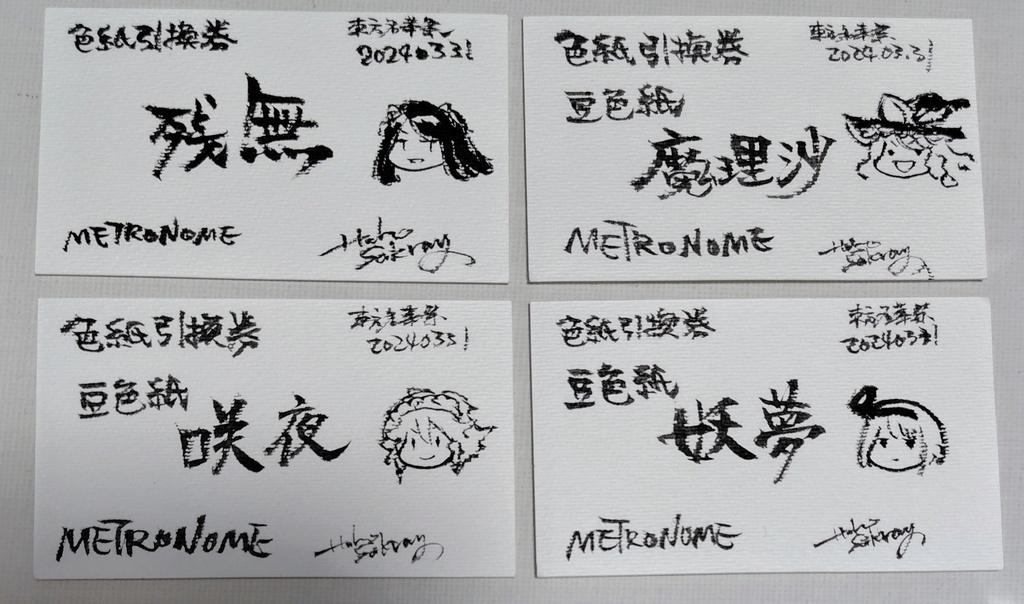 色紙引換券
東方名華祭
2024.03.31
残無
METRONOME
色紙引換券
東方名華祭
2024.03.31
豆色紙
魔理沙
METRONOME
色紙引換券
東方名華祭
2024.03.31
豆色紙
咲夜
METRONOME
色紙引換券
東方名華祭
2024.03.31
豆色紙
妖夢
METRONOME